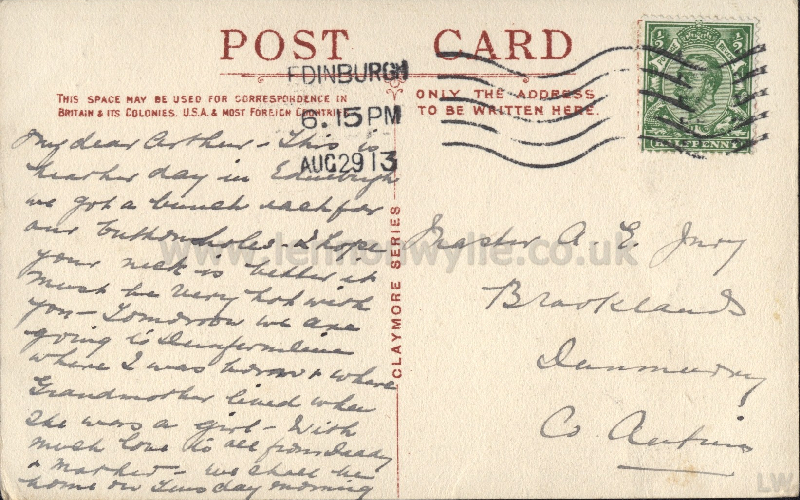 POST CARD
EDINBURGH
6.15 PM
AUG 29 13
THIS SPACE MAY BE USED FOR CORRESPONDENCE IN
BRITAIN & ITS COLONIES, U.S.A. & MOST FOREIGN COUNTRIES
ONLY THE ADDRESS
TO BE WRITTEN HERE.
½ ½
HALFPENNY
My dear Arthur - This is
heather day in Edinburgh
we got a bunch each for
our buttonholes - I hope
your neck is better it
must be very hot with
you - Tomorrow we are
going to Dunfermline
where I was born & where
Grandmother lived when
she was a girl - With
much love to all from Daddy
& Mother - We shall be
home on Tuesday morning
CLAYMORE SERIES
Master A. E. Jury
Brooklands
Dunmurry
Co Antrim
www.lennonwylie.co.uk
LW